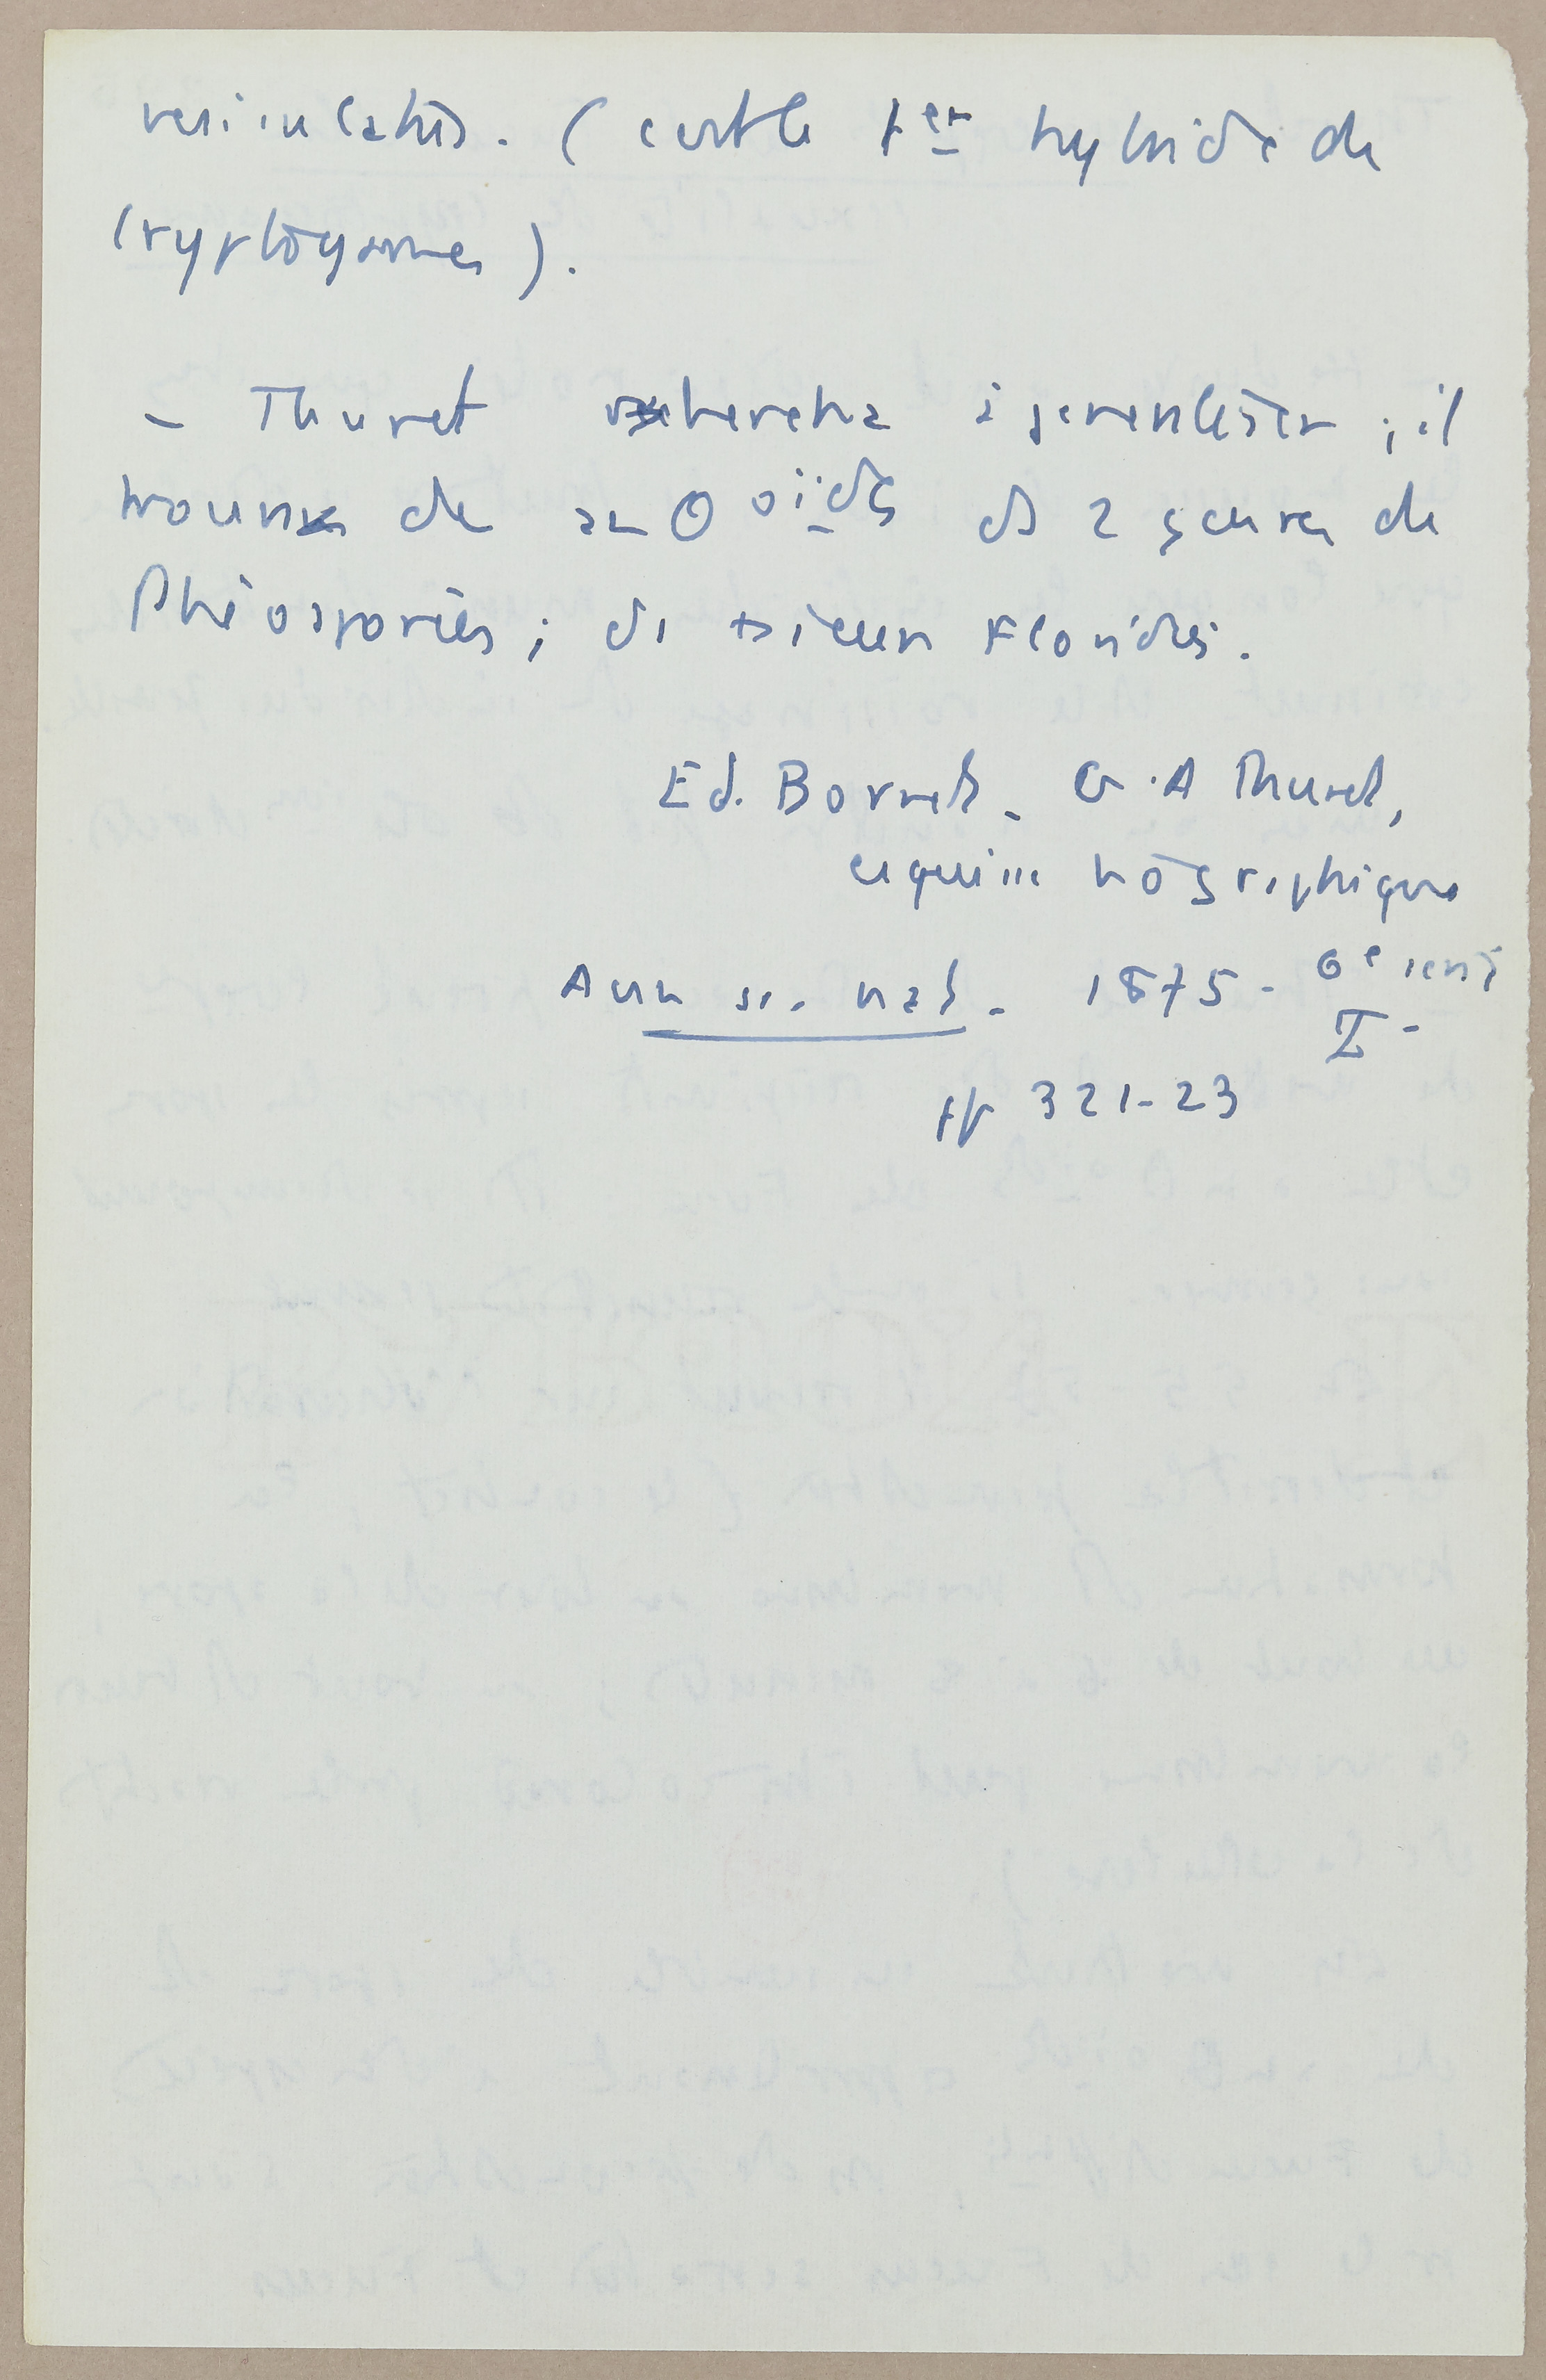 vesiculatus. (c'est le 1er hybride de
cryptogames).
- Thuret chercha à generaliser ; il
trouva de anθoïdes ds 2 genres de
Phéosporées ; ds +sieurs Floridées.
Ed. Bornet - G. A Thuret,
esquisse biographique
Ann sc. nat. 1875 - 6e serie
I -
pp 321-23